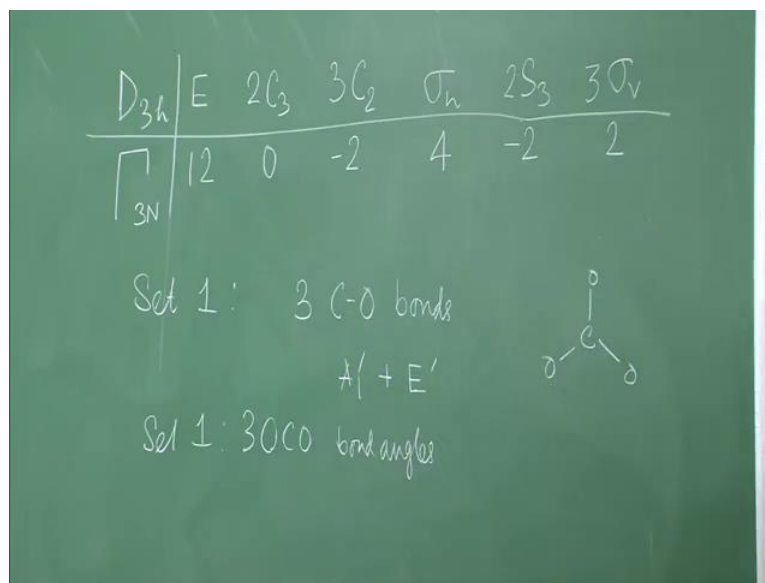 D3h E 2C3 3C2 σh 2S3 3σv
Γ3N 12 0 -2 4 -2 2
Set 1: 3 C-O bonds
A1' + E'
Set 1: 3OCO bond angles
O
C
O O